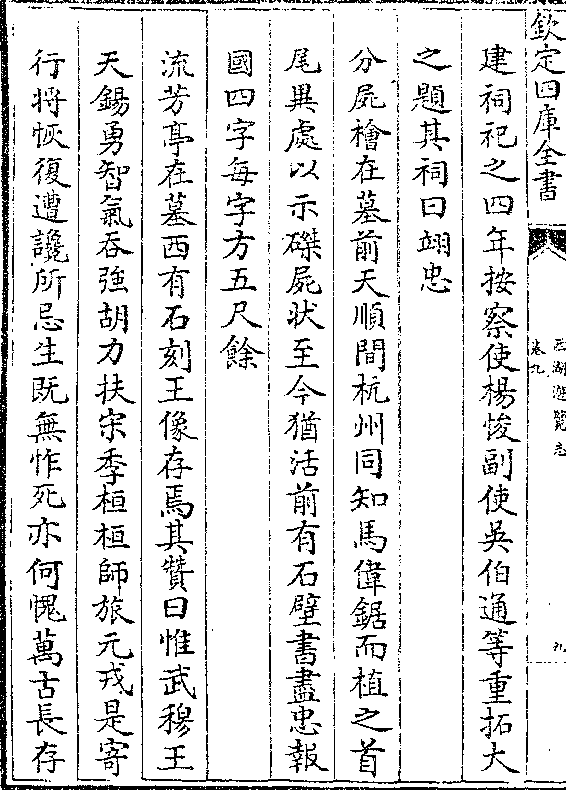 欽定四庫全書
西湖遊覽志
卷九
九
建祠祀之四年按察使楊悛副使吳伯通等重拓大
之題其祠曰翊忠
分屍檜在墓前天順間杭州同知馬偉鋸而植之首
尾異處以示磔屍狀至今猶活前有石壁書盡忠報
國四字每字方五尺餘
流芳亭在墓西有石刻王像存焉其贊曰惟武穆王
天錫勇智氣吞強胡力扶宋季桓桓師旅元戎是寄
行将恢復遭讒所忌生既無怍死亦何愧萬古長存